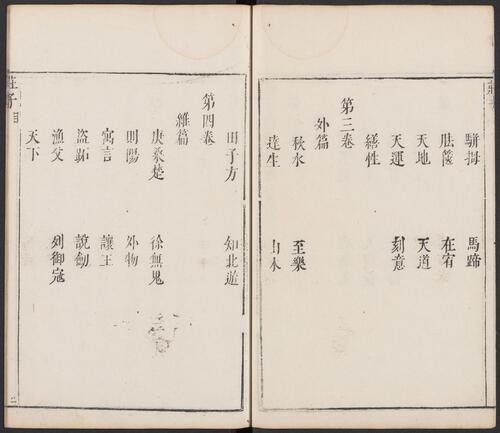 駢拇　馬蹄
胠篋　在宥
天地　天道
天運　刻意
繕性
第三卷
外篇
秋水　至樂
達生　山木
田子方　知北遊
第四卷
雜篇
庚桑楚　徐無鬼
則陽　外物
寓言　讓王
盜跖　說劍
漁父　列御寇
天下
莊子目
二